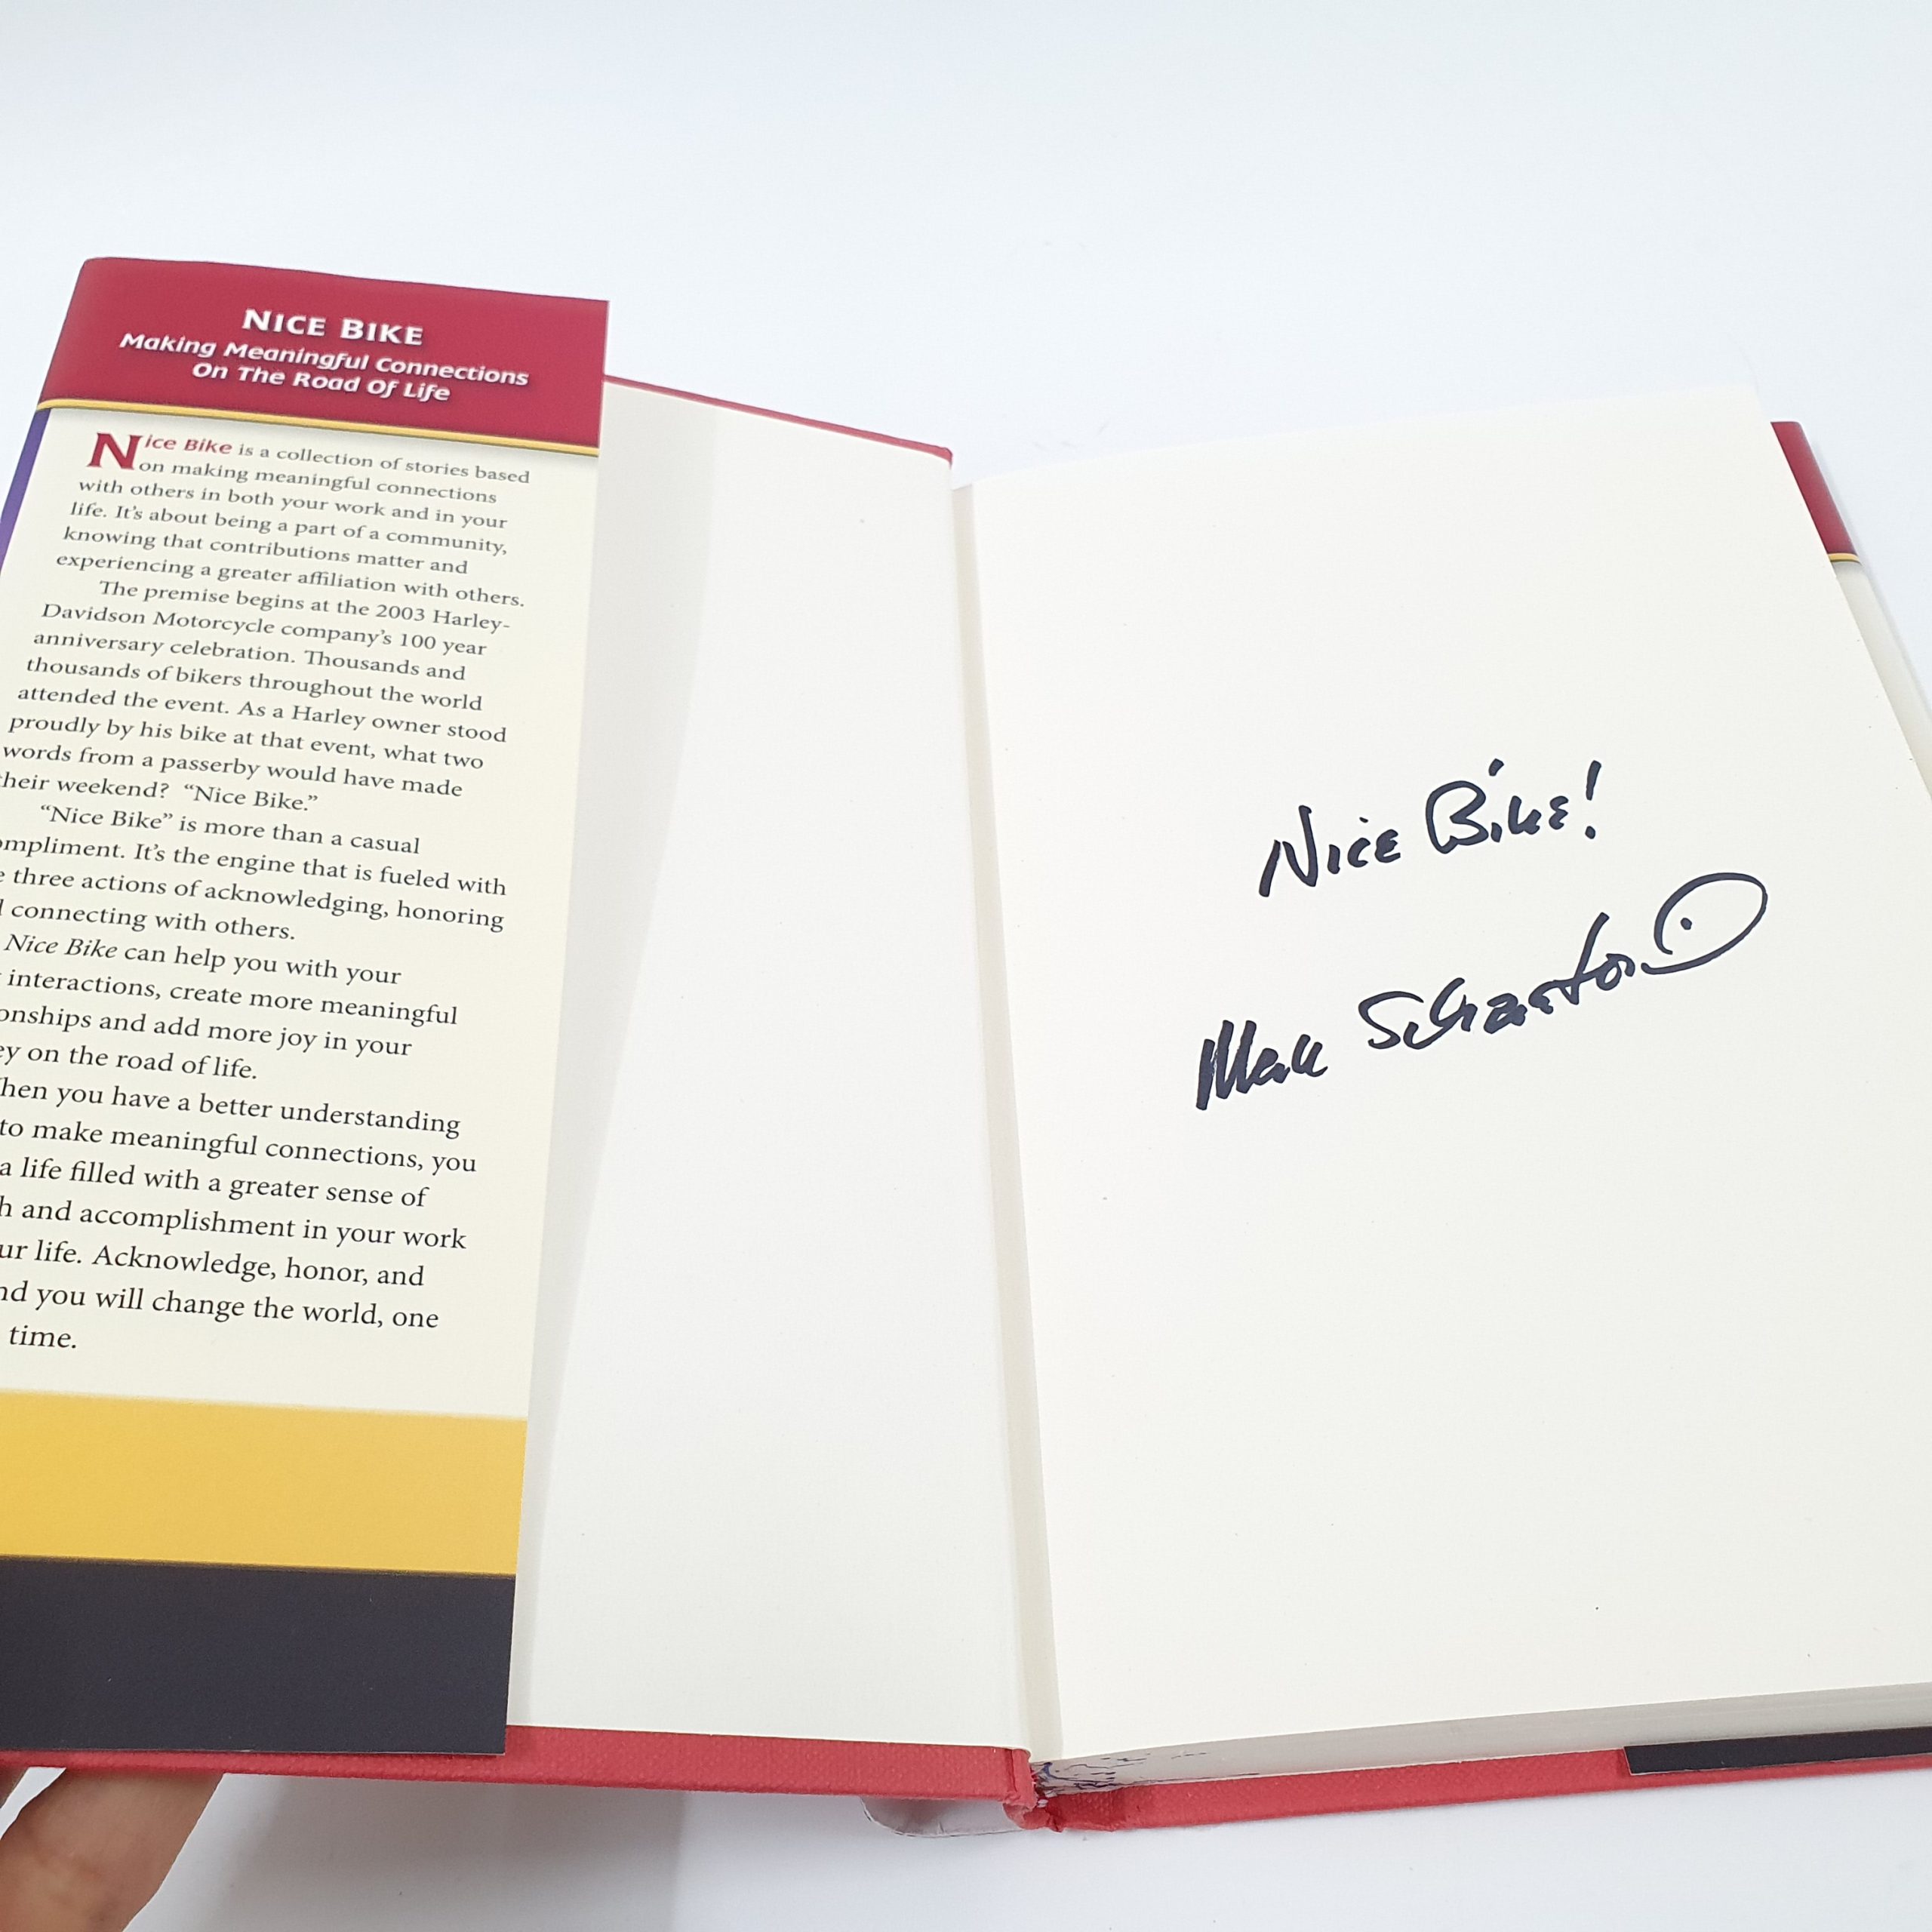 NICE BIKE
Making Meaningful Connections
On The Road Of Life
Nice Bike is a collection of stories based
on making meaningful connections
with others in both your work and in your
life. It's about being a part of a community,
knowing that contributions matter and
experiencing a greater affiliation with others.
The premise begins at the 2003 Harley-
Davidson Motorcycle company's 100 year
anniversary celebration. Thousands and
thousands of bikers throughout the world
attended the event. As a Harley owner stood
proudly by his bike at that event, what two
words from a passerby would have made
their weekend? “Nice Bike.”
“Nice Bike” is more than a casual
ompliment. It's the engine that is fueled with
three actions of acknowledging, honoring
connecting with others.
Nice Bike can help you with your
interactions, create more meaningful
onships and add more joy in your
ey on the road of life.
hen you have a better understanding
to make meaningful connections, you
a life filled with a greater sense of
h and accomplishment in your work
ur life. Acknowledge, honor, and
nd you will change the world, one
time.
Nice Bike!
Mark Scharenbroich